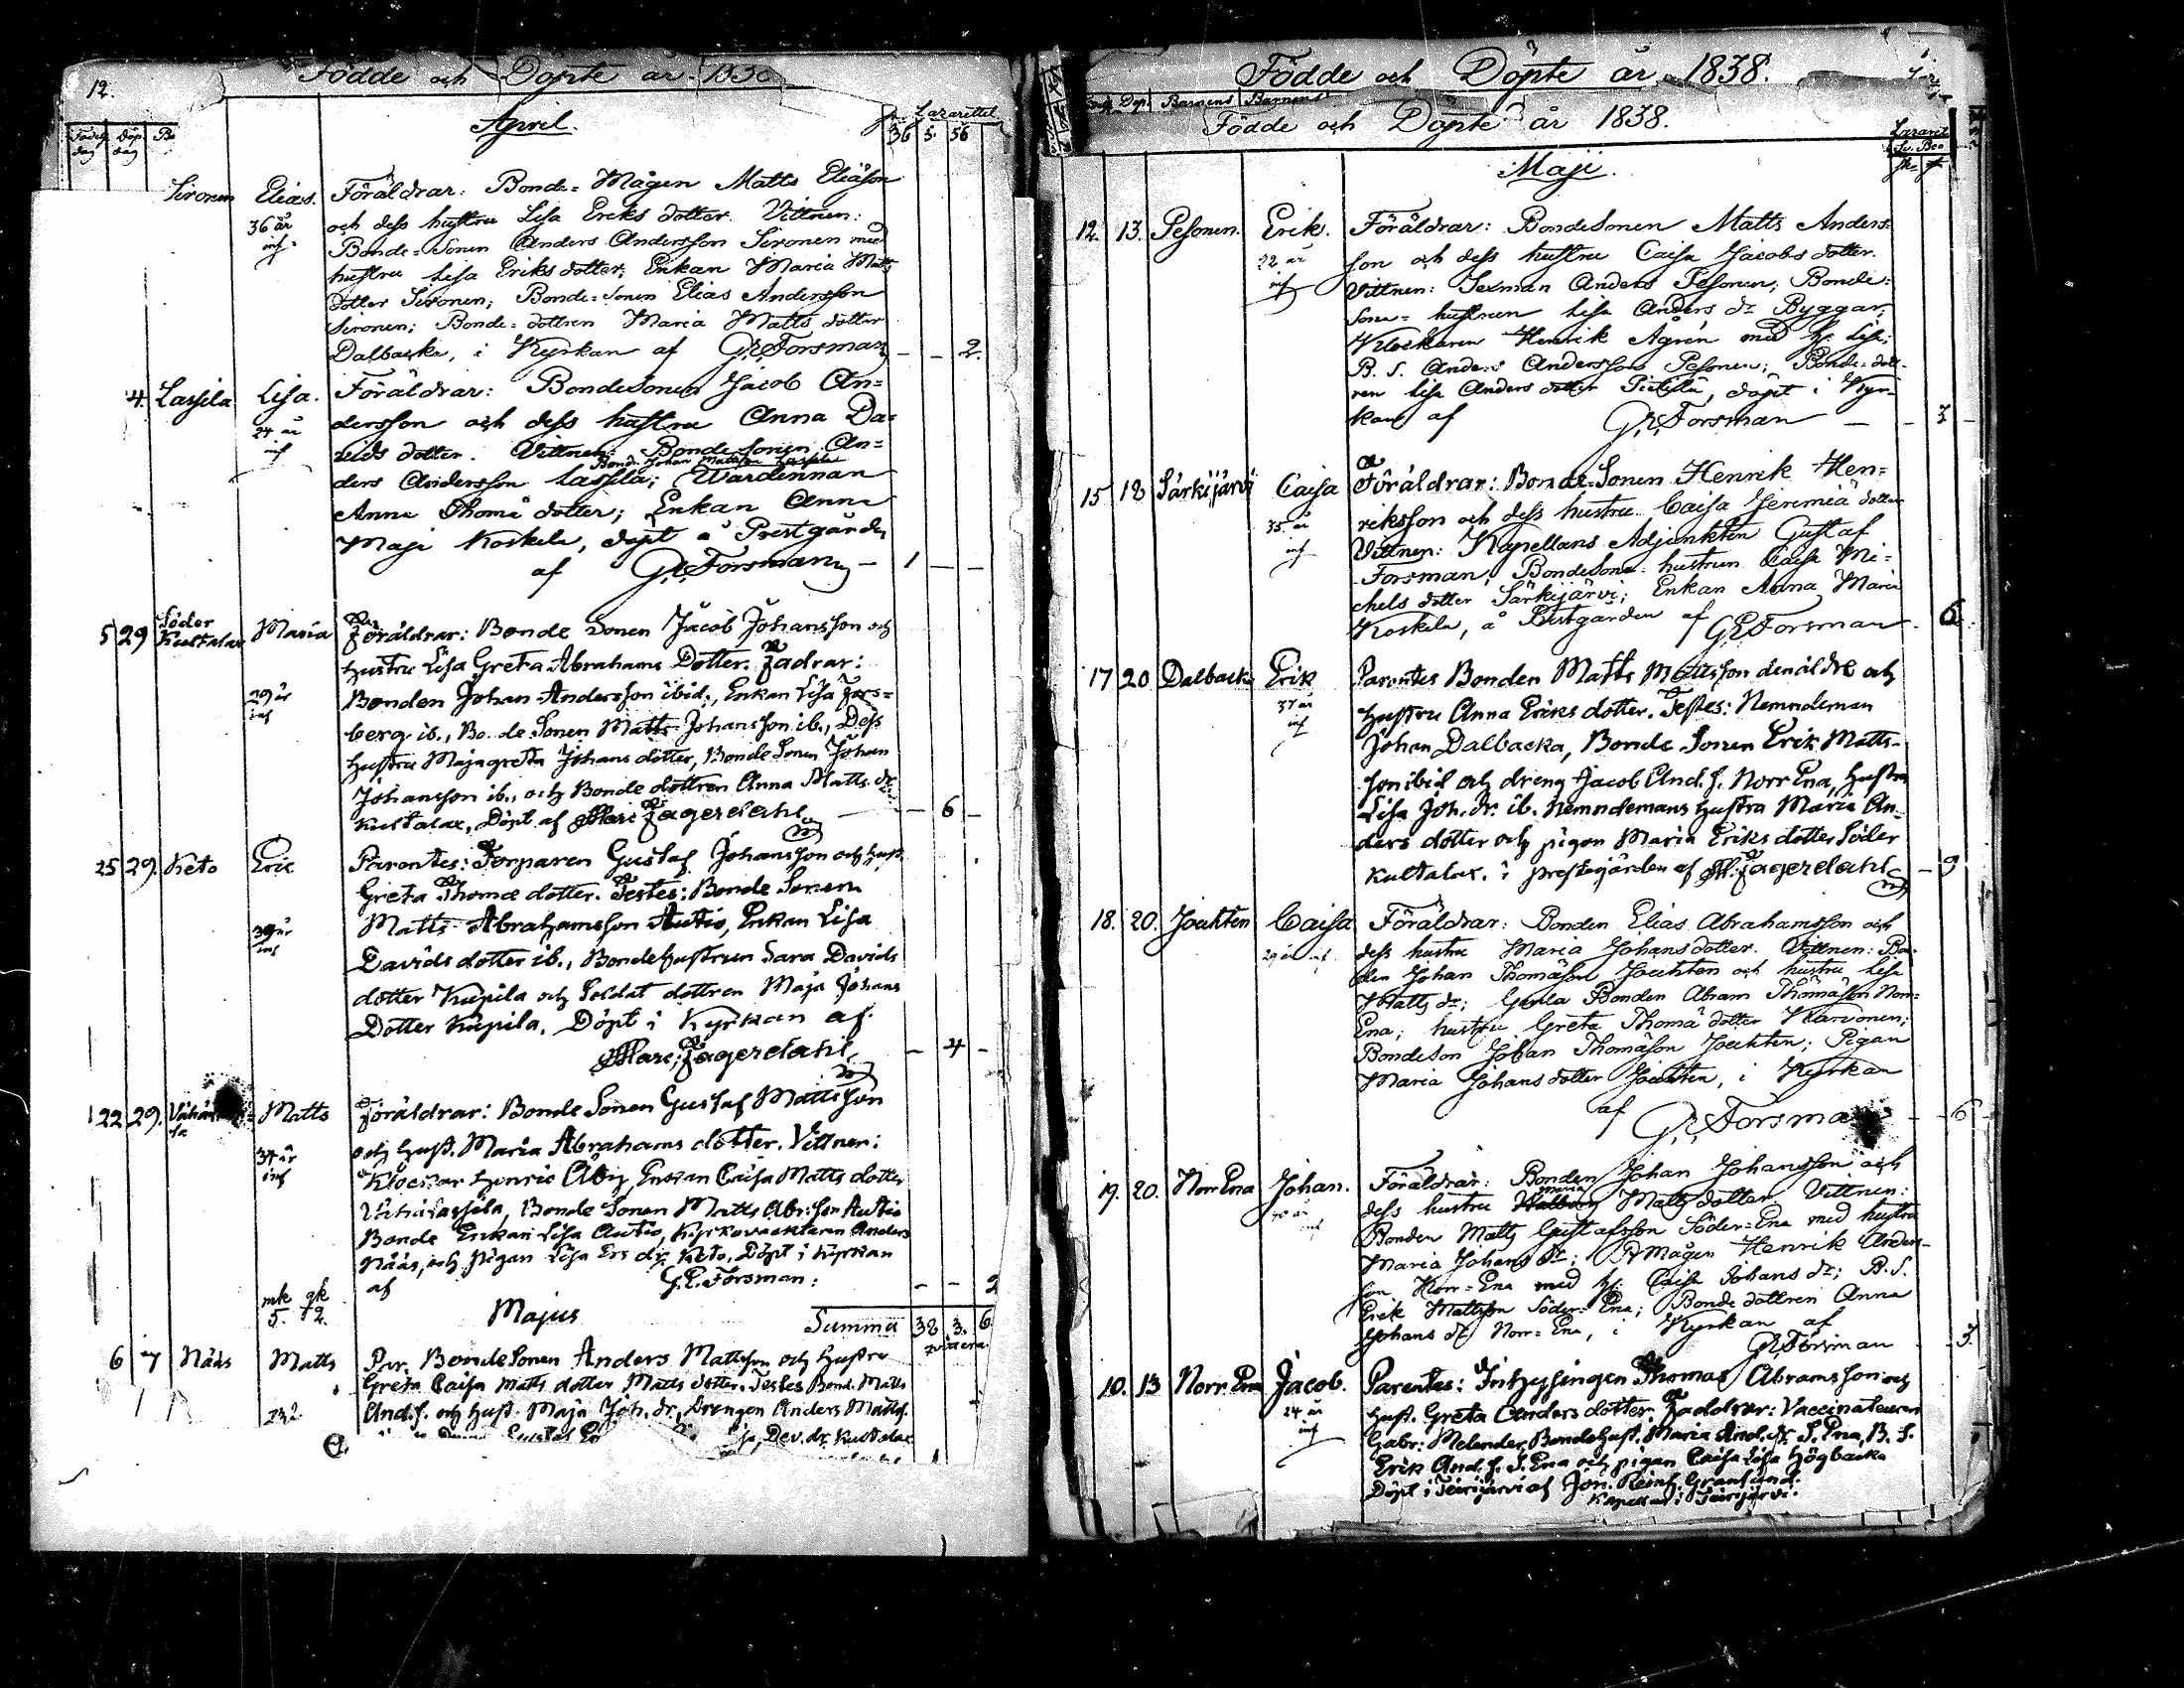 12.
Födde och Döpte år 1838
April.
Lazarettet
36 3. 56
Föd. dag Döp dag Ba
Sironen Elias. Föräldrar: Bonde=Mågen Matts Eliäson
36 år och dess hustru Lisa Eriks dotter. Vittnen:
Bonde=Sonen Anders Andersson Sironen med
hustru Lisa Eriks dotter; Enkan Maria Matts
dotter Sironen; Bonde=Sonen Elias Andersson
Sironen; Bonde=dottren Maria Matts dotter
Dalbacka, i Kyrkan af G.E. Forsman - - 2.
4. Lassila Lisa. Föräldrar: BondeSonen Jacob An=
24 år dersson och dess hustru Anna Da=
vids dotter. Vittnen: Bonde Sonen An=
Bond. Johan Mattson Lassila
ders Andersson Lassila; Wardinman
Anna Thomä dotter; Enkan Anna
Maja Koskela, döpt å Prestgården
af G.E. Forsman - 1 - -
5 29 Söder Kultalax Maria Föräldrar: Bonde Sonen Jacob Johansson och
hustru Lisa Greta Abrahams Dotter. Fadrar:
29 år Bonden Johan Andersson ibid., Enkan Lisa Fors=
berg ib., Bo. de Sonen Matts Johansson ib., Dess
hustru Majagreta Johans dotter, Bonde Sonen Johan
Johansson ib., och Bonde dottren Anna Matts dr
Kultalax, Döpt af Fagerdahl - - 6 -
25 29. Keto Eric Parentes: Torparen Gustaf Johansson och hust.
Greta Thomæ dotter. Testes: Bonde Sonen
39 år Matts Abrahamsson Autio, Enkan Lisa
Davids dotter ib., Bondehustrun Sara Davids
dotter Kujpila och Soldat dottren Maja Johans
Dotter Kujpila, Döpt i Kyrkan af
Fagerdahl - 4 -
22 29. Matts Föräldrar: Bonde Sonen Gustaf Mattsson
och hust. Maria Abrahams dotter. Vittnen:
37 år Klockar Henric Åby, Enkan Caisa Matts dotter
Vähälassila, Bonde Sonen Matts Abr:son Autio
Bonde Enkan Lisa Autio, Kyrkovacktaren Anders
Nääs, och Pigan Lisa Ers dr. Keto. Döpt i Kyrkan
af G.E. Forsman: - - 2
mk qk
5. 12.
Majus Summa 38 3. 6
6 7 Nääs Matts Par. BondeSonen Anders Mattsson och hustru
Greta Caisa Matts dotter. Testes Bond. Matts
And.s. och hust. Maja Joh. dr, Drengen Anders Matts.
Dav. dr. Kultalax
Födde och Döpte år 1838.
Döp. Barnens Barnens
Födde och Döpte år 1838.
Lazaret
Maji.
12. 13. Pesonen. Erik. Föräldrar: BondeSonen Matts Anders=
22 år son och dess hustru Caisa Jacobs dotter.
Vittnen: Sexman Anders Pesonen; Bonde=
Sons=hustrun Lisa Anders dr Byggar;
Klockaren Henrik Ågrén med h. Lisa;
B. S. Anders Andersson Pesonen; Bonde=dott-
ren Lisa Anders dotter Pietilä, döpt i Kyr=
kan af G.E. Forsman - - 3 -
15 18 Särkijärvi Caisa Föräldrar: Bonde=Sonen Henrik Hen=
35 år riksson och dess hustru Caisa Jeremiä dotter
Vittnen: Kapellans Adjunkten Gustaf
Forsman; BondeSons=hustrun Caisa Mi=
chels dotter Särkijärvi; Enkan Anna Maria
Koskela, å Prestgården af G.E. Forsman - 6.
17 20 Dalbacka Erik Parentes Bonden Matts Mattsson den äldre och
37 år hustru Anna Eriks dotter. Testes: Nemndeman
Johan Dalbacka, Bonde Sonen Erik Matts-
son ibid och dreng Jacob And. s. Norr Ena, hustru
Lisa Joh. dr. ib. Nemndemans hustru Maria An-
ders dotter och pigan Maria Eriks dotter Söder
Kultalax. i prestegården af Fagerdahl - 9
18. 20. Joukten Caisa Föräldrar: Bonden Elias Abrahamsson och
29 år dess hustru Maria Johans dotter. Vittnen: Bon-
den Johan Thomäson Joukten och hustru Lisa
Matts dr; Gamla Bonden Abram Thomäson Norr=
Ena; hustru Greta Thomä dotter Karvonen;
BondeSon Johan Thomäson Joukten; Pigan
Maria Johans dotter Joukten, i Kyrkan
af G.E. Forsma - 6 -
19. 20. Norr Ena Johan. Föräldrar: Bonden Johan Johansson och
dess hustru Maria Matts dotter. Vittnen:
Bonden Matts Gustafsson Söder=Ena med hustru
Maria Johans dr; B Mågen Henrik Anders-
son Norr=Ena med h. Caisa Johans dr; B. S.
Erik Mattsson Söder=Ena; Bonde dottren Anna
Johans dr Norr=Ena, i Kyrkan af
G.E. Forsman - 3.
10. 13 Norr Ena Jacob. Parentes: Inhysingen Thomas Abramsson och
24 år hust. Greta Anders dotter. Faddrar: Vaccinateuren
Gabr: Melender, Bondehust. Maria And. dr. S. Ena, B. S.
Erik And. s. S. Ena och pigan Caisa Lisa Högbacka
Döpt i Teirijärvi af Joh. Reinh. Granlund.
Kapellan i Teirijärvi.